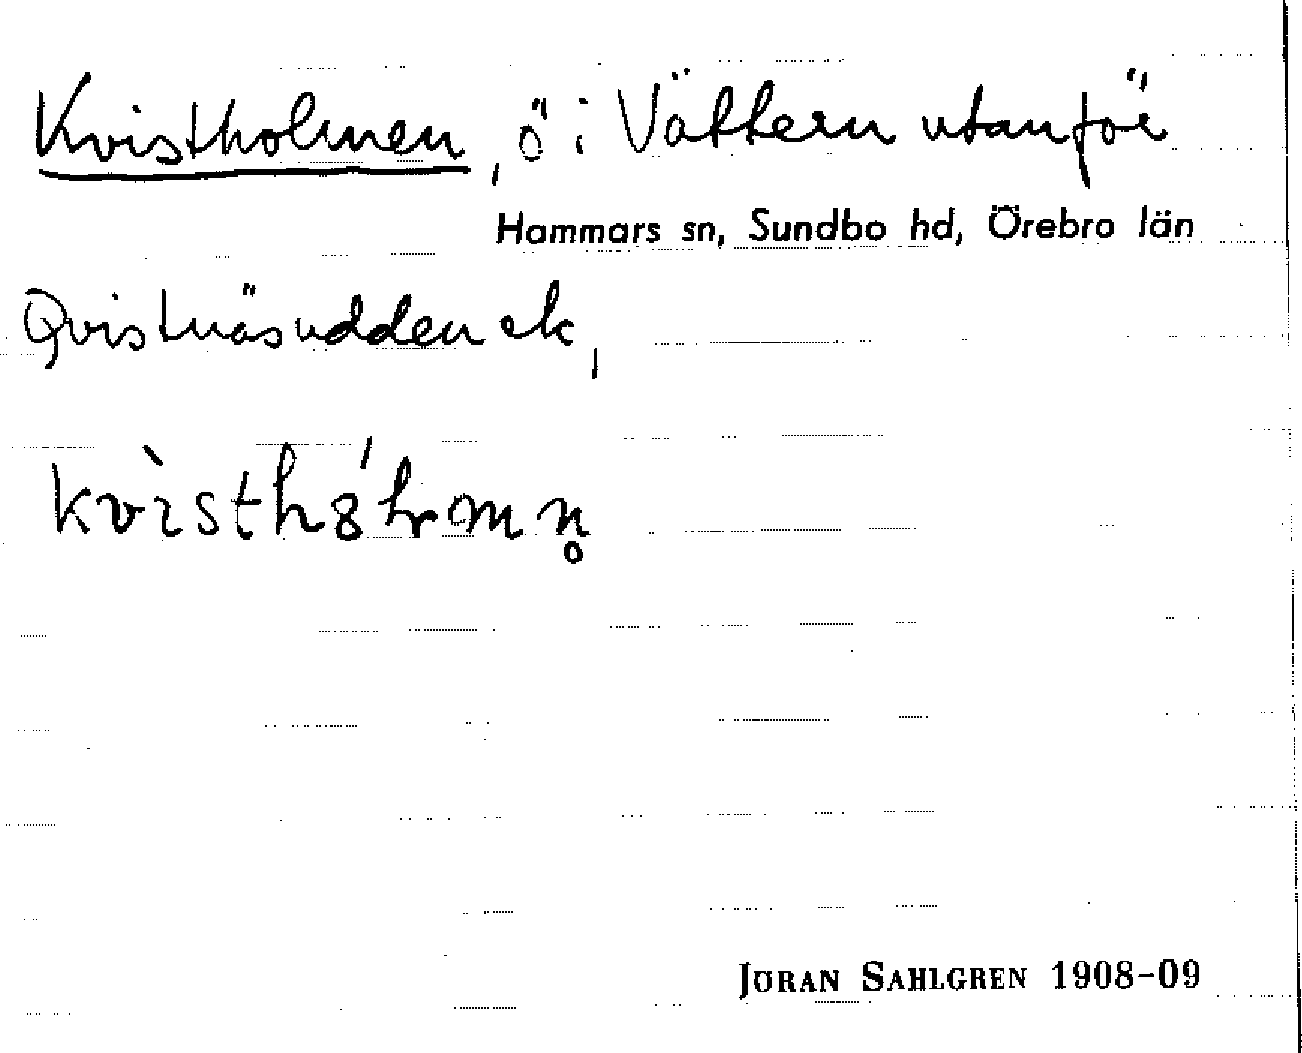 Kvistholmen, ö i Vättern utanför
Hammars sn, Sundbo hd, Örebro län
Qvistnäsudden ek,
kvìsthȣ́lmn̥
JÖRAN SAHLGREN 1908-09